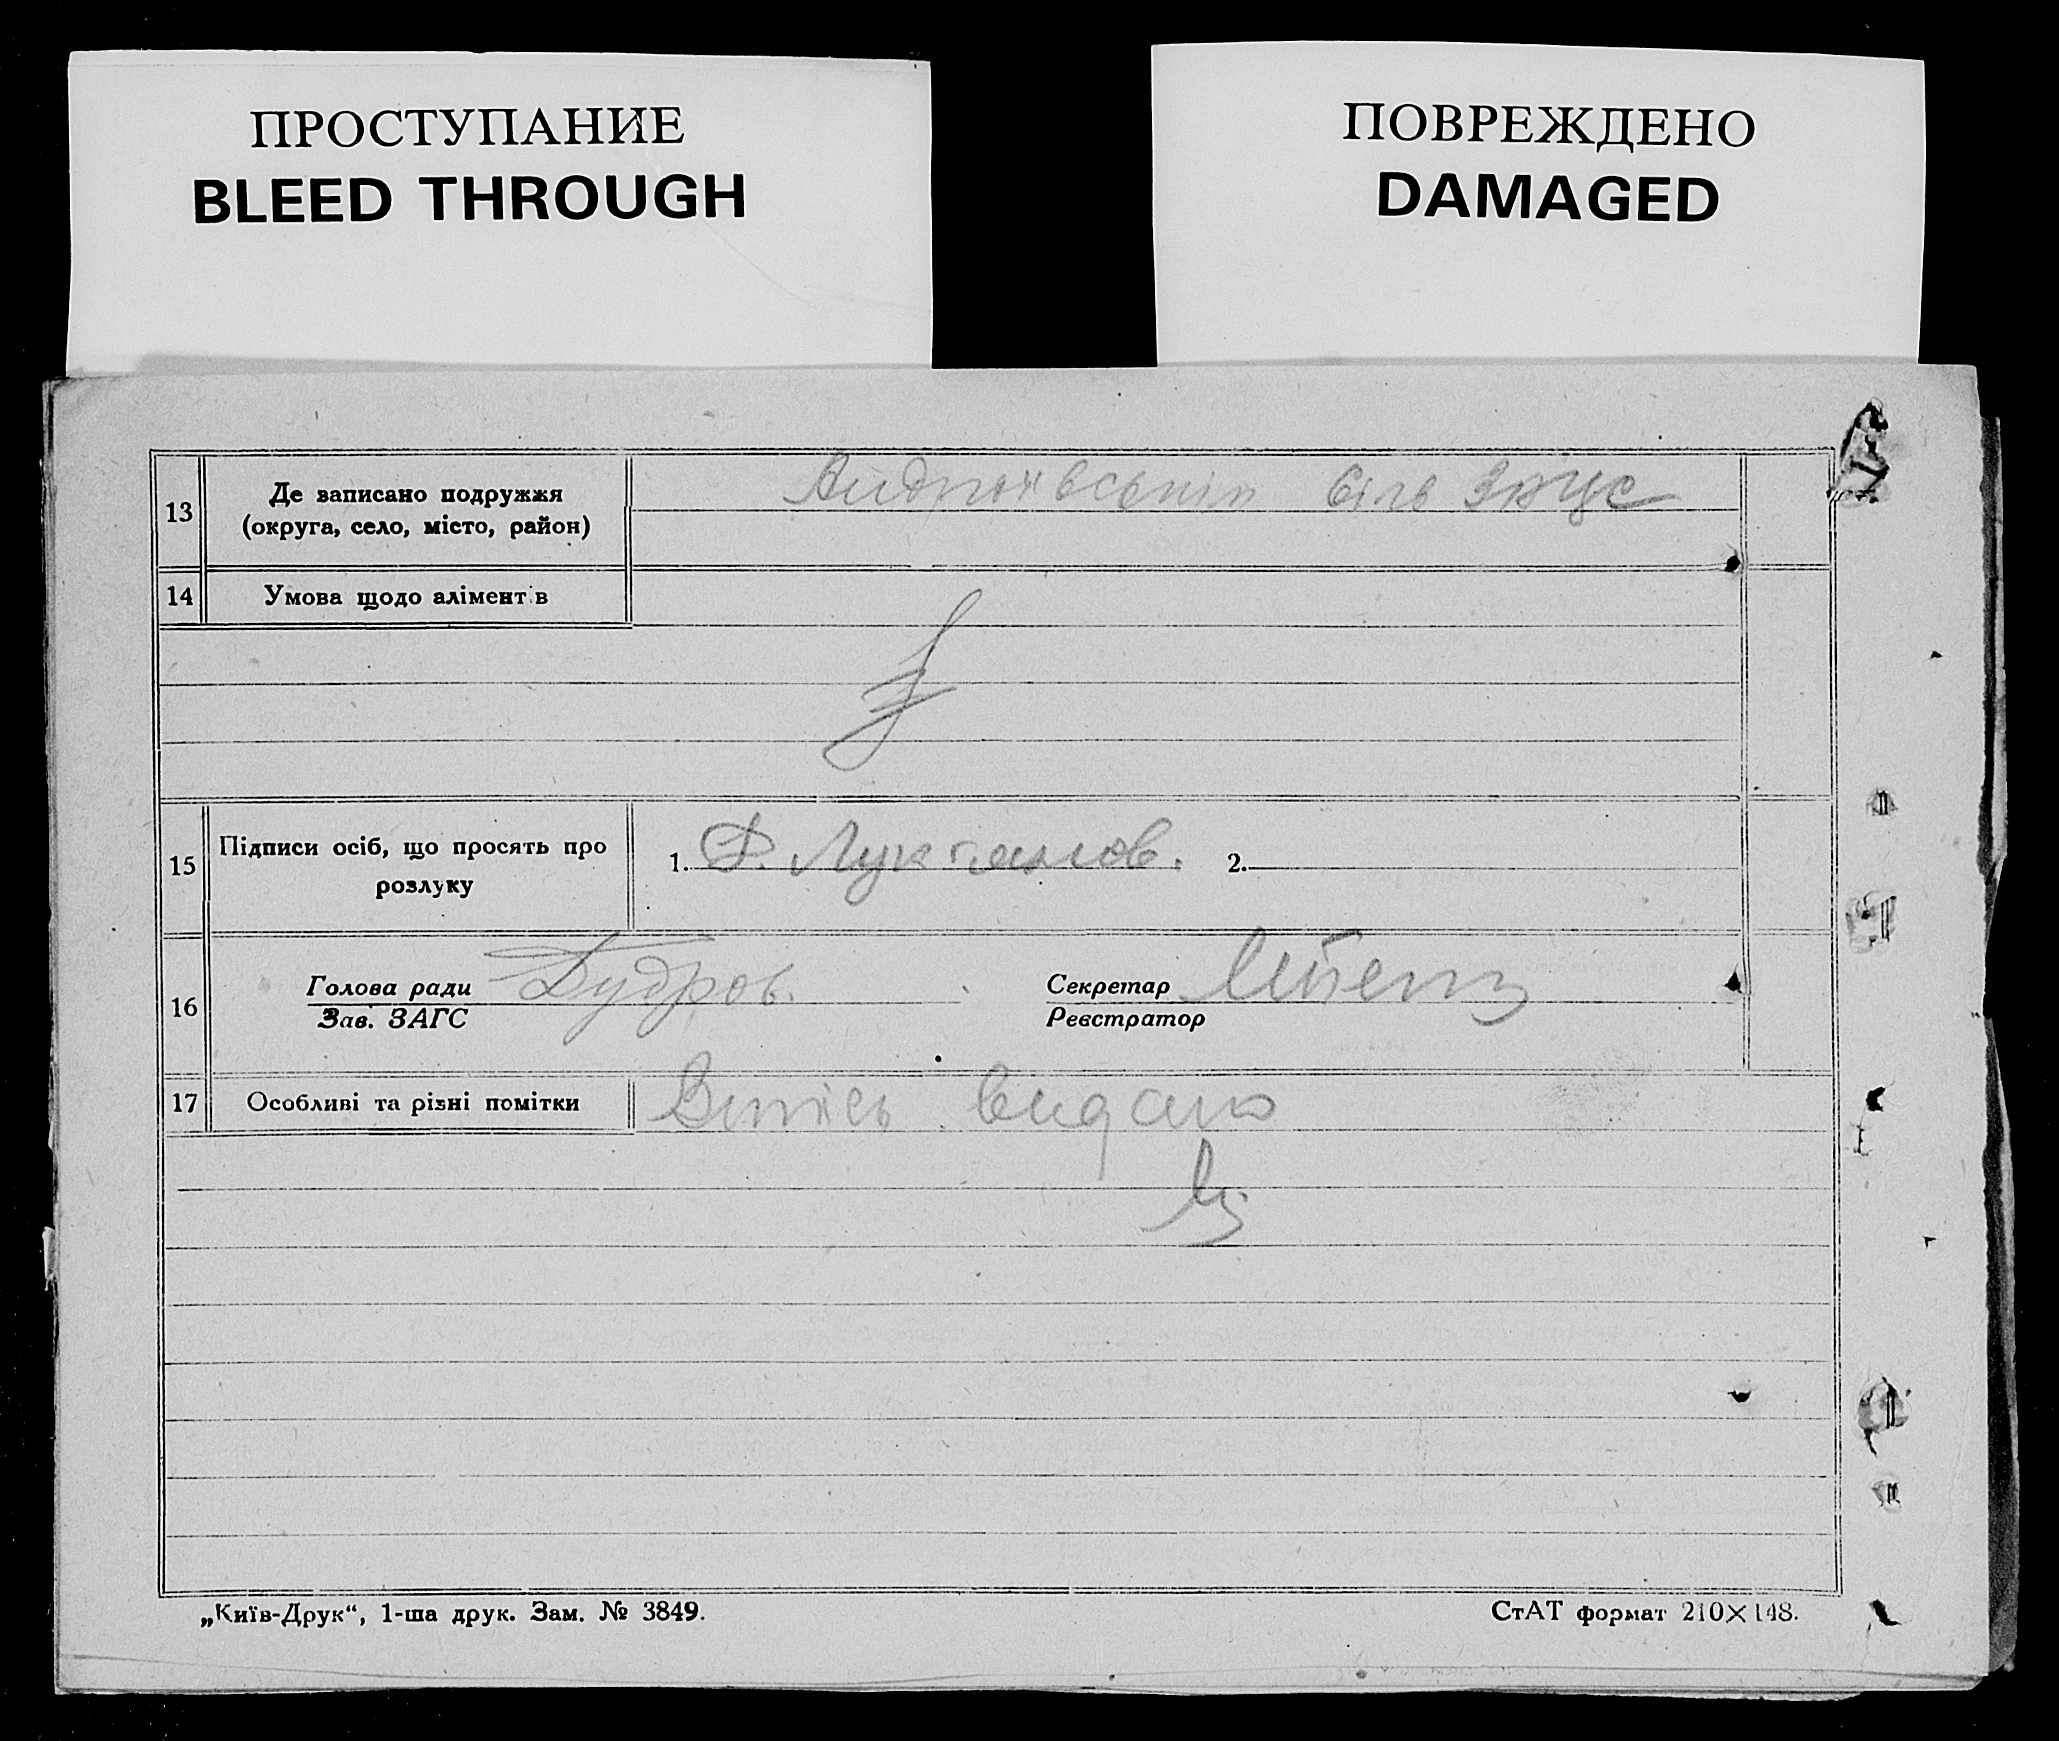 ПРОСТУПАНИЕ
BLEED THROUGH
ПОВРЕЖДЕНО
DAMAGED
13 Де записано подружжя
(округа, село, місто, район)
14 Умова щодо алімент в
15 Підписи осіб, що просять про
розлуку
1. 2.
16 Голова ради Секретар
Зав. ЗАГС Реєстратор
17 Особливі та різні помітки видано
„Київ-Друк“, 1-ша друк. Зам. № 3849.
СтАТ формат 210×148.